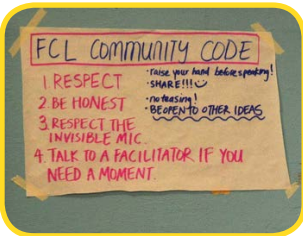 FCL COMMUNITY CODE
1. RESPECT
2. BE HONEST
3. RESPECT THE
INVISIBLE MIC.
4. TALK TO A FACILITATOR IF YOU
NEED A MOMENT.
• raise your hand before speaking!
• SHARE!!!
• no teasing!
BE OPEN TO OTHER IDEAS